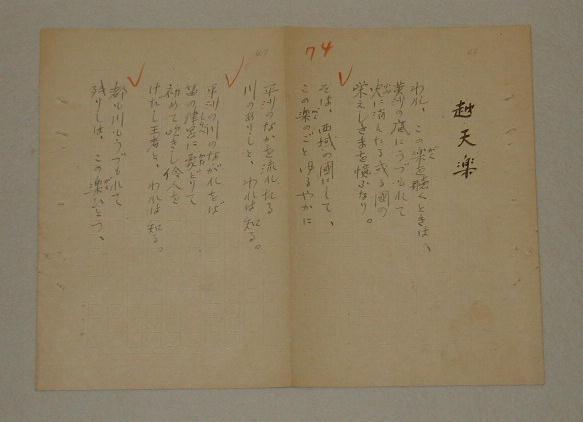 越天楽
われ、この楽を聴くときは、
黄沙の底にうづもれて
火に消えたる或る國の
栄えしさまを憶ふなり。
そは、西域の國にして、
この楽のごとゆるやかに
74
平沙のなかを流れたる
川のありしと、われは知る。
平沙の川のながれをば
笛の律呂に
初めて吹きし伶人を
けだし王者と、われは知る。
都も川もうづもれて
残りしは、この楽ひとつ、